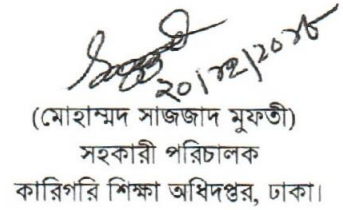 ২০/১২/২০১৮
(মোহাম্মদ সাজজাদ মুফতী)
সহকারী পরিচালক
কারিগরি শিক্ষা অধিদপ্তর, ঢাকা।